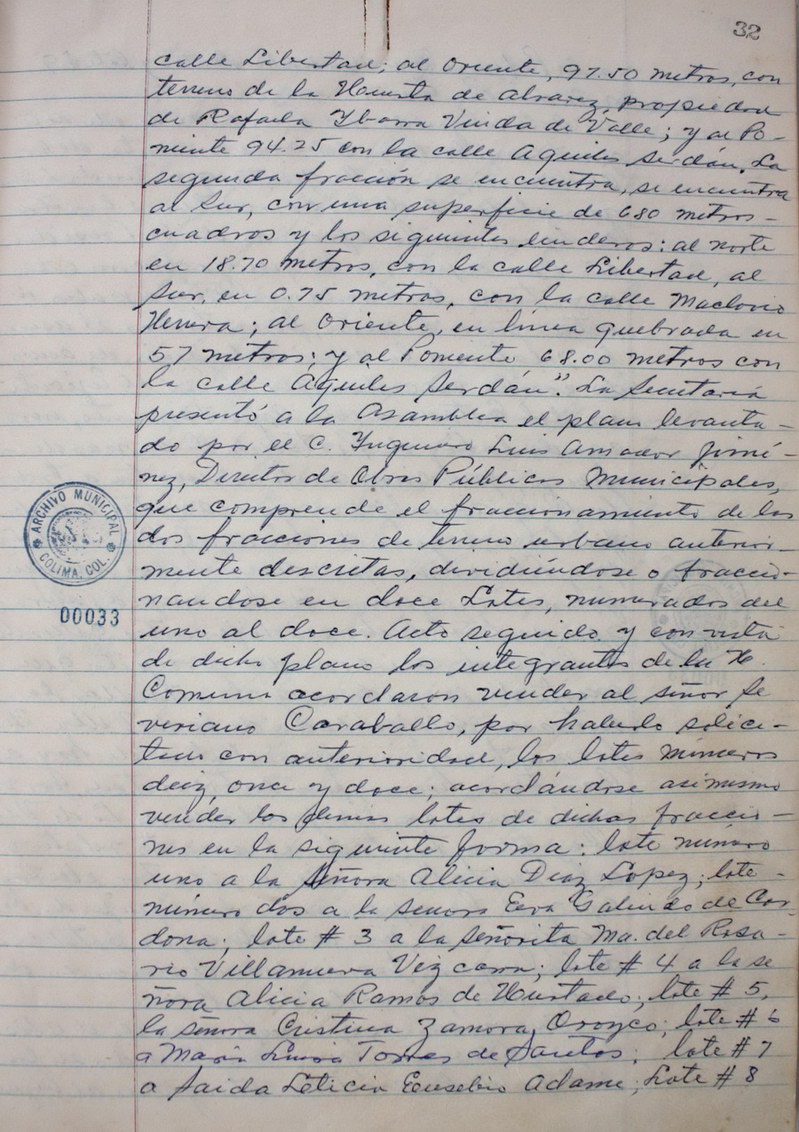 32
calle Libertad; al Oriente, 97.50 metros, con
terreno de la Huerta de Alvarez, propiedad
de Rafaela Ybarra Viuda de Valle; y al Po-
niente 94.25 con la calle Aquiles Serdán. La
segunda fracción se encuentra, se encuentra
al Sur, con una superficie de 680 metros-
cuadros y los siguientes linderos: al norte
en 18.70 metros, con la calle Libertad, al
Sur, en 0.75 metros, con la calle Maclovio
Herrera; al Oriente, en línea quebrada en
57 metros; y al Poniente 68.00 metros con
la calle Aquiles Serdán". La Secretaría
presentó a la Asamblea el plano levanta-
do por el C. Yngeniero Luis Amador Jimé-
nez, Director de Obras Públicas Municipales,
que comprende el fraccionamiento de las
dos fracciones de terreno urbano anterior-
mente descritas, dividiéndose o fraccio-
nandose en doce Lotes, numerados del
uno al doce. Acto seguido y con vista
de dicho plano los integrantes de la H.
Comuna acordaron vender al señor Se
veriano Caraballo, por haberlo solici-
tado con anterioridad, los lotes números
diez, once y doce; acordándose asimismo
vender los demas lotes de dichas fraccio-
nes en la siguiente forma: lote número
uno a la señora Alicia Diaz Lopez; lote-
número dos a la senora Eva Galindo de Car-
dona; lote # 3 a la señorita Ma. del Rosa-
rio Villanueva Vizcarra; lote # 4 a la se
ñora Alicia Ramos de Hurtado; lote # 5,
la señora Cristina Zamora Orozco; lote # 6
a María Luisa Torres de Santos; lote # 7
a Saida Leticia Eusebio Adame; Lote # 8
ARCHIVO MUNICIPAL
COLIMA, COL.
00033